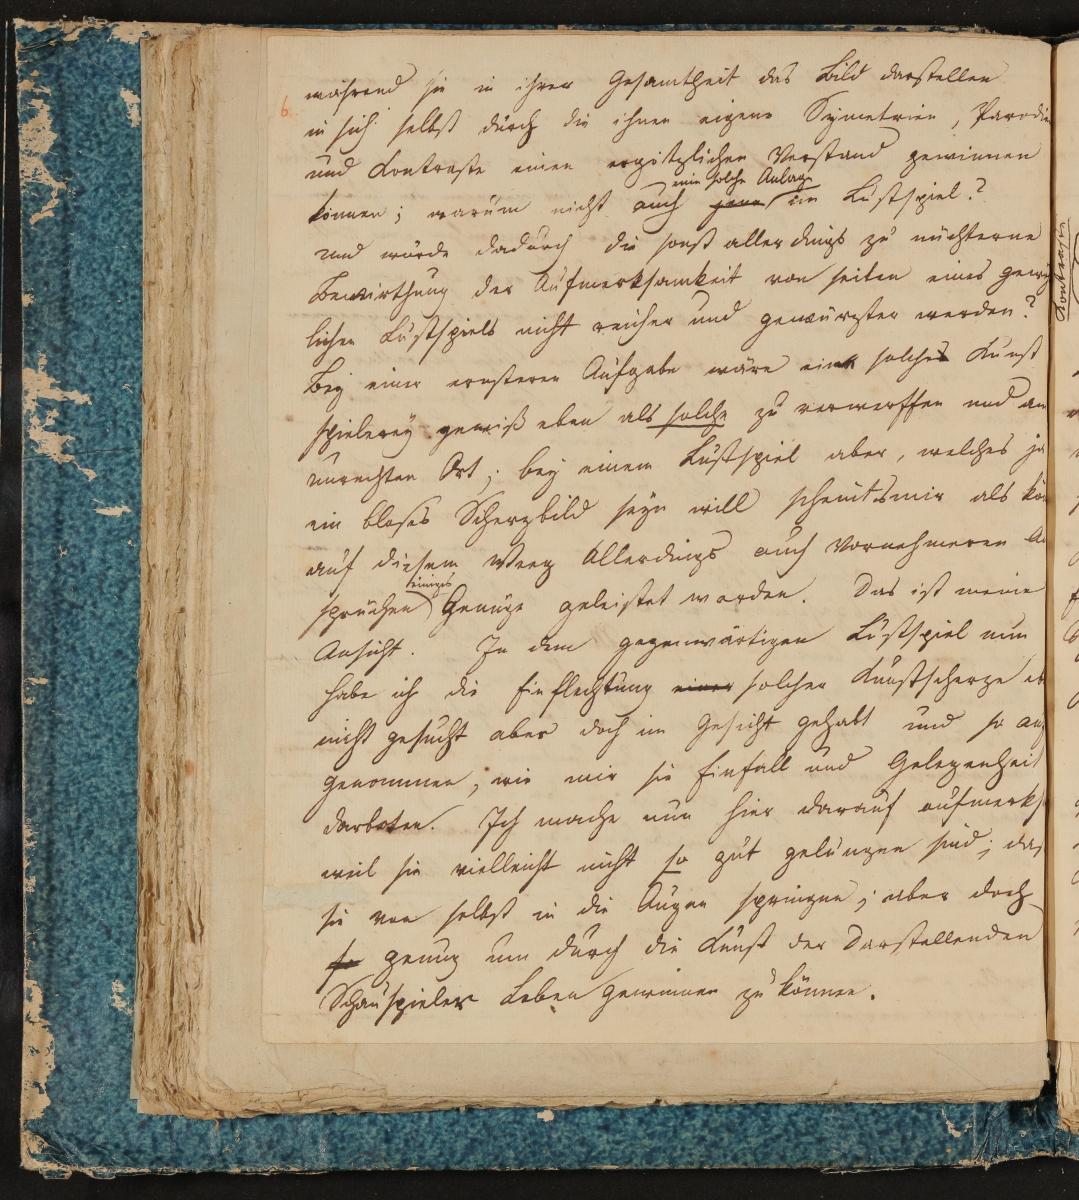 6.
während sie in ihrer Gesamtheit das Bild darstellen
in sich selbst durch die ihnen eigene Symetrien, Parodien
und Kontraste einen ergötzlichen Verstand gewinnen
eine solche Anlage
können; warum nicht auch jene im Lustspiel?
und würde dadurch die sonst allerdings zu nüchterne
Bewirthung der Aufmerksamkeit von seiten eines gewöhn
lichen Lustspiels nicht reicher und gewürzter werden?
Bey einer ernsteren Aufgabe wäre eine solche Kunst
spielerey gewiß eben als solche zu verwerffen und am
unrechten Ort; bey einem Lustspiel aber, welches ja
ein bloses Scherzbild seyn will scheints mir als kön
auf diesem Weeg Allerdings auch Vornehmeren An
einiges
sprüchen Genüge geleistet werden. Das ist meine
Ansicht. In dem gegenwärtigen Lustspiel nun
habe ich die Einflechtung einer solcher Kunstscherze eb
nicht gesucht aber doch im Gesicht gehabt und so an
genommen, wie mir sie Einfall und Gelegenheit
darboten. Ich mache nun hier darauf aufmerks
weil sie vielleicht nicht so gut gelungen sind; das
sie von selbst in die Augen springen; aber doch
so genug um durch die Kunst der Darstellenden
Schauspieler Leben gewinnen zu können.
Kontraste